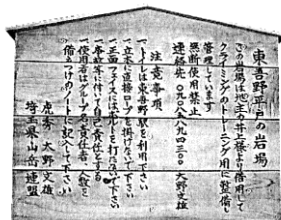 東吾野平戸の岩場
この岩場は地主の井上様より借用して
クライミングのトレーニング用に整備、
管理しています
無断使用禁止
連絡先 大野文雄
注意事項
一、トイレは東吾野駅を利用下さい
一、立木に直接ロープを掛けないで下さい
一、正面フェイスにはボルトを打たないで下さい
一、事故等は自己責任とする
一、使用者はグループの責任者、人数を
備えつけのノートに記入して下さい
大野文雄
埼玉県山岳連盟